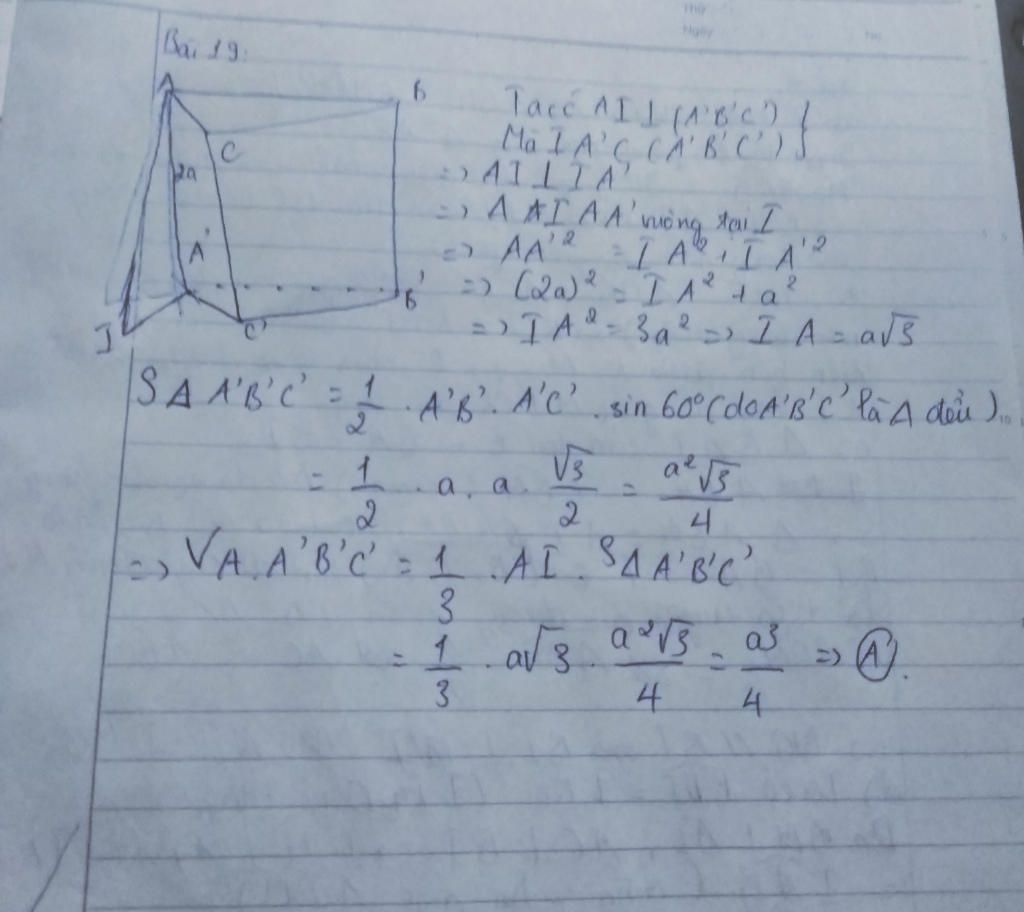 Thứ
Ngày
No.
Bài 19:
A
B
C
2a
A'
B'
I
C'
Ta có AI ⊥ (A'B'C') }
Mà IA' ⊂ (A'B'C') }
=> AI ⊥ IA'
=> Δ IAA' vuông tại I
=> AA'² = IA² + IA'²
=> (2a)² = IA² + a²
=> IA² = 3a² => IA = a√3
SΔA'B'C' = 1/2 . A'B' . A'C' . sin 60° (do A'B'C' là Δ đều)
= 1/2 . a . a . √3/2 = a²√3/4
=> VA.A'B'C' = 1/3 . AI . SΔA'B'C'
= 1/3 . a√3 . a²√3/4 = a³/4 => Ⓐ.